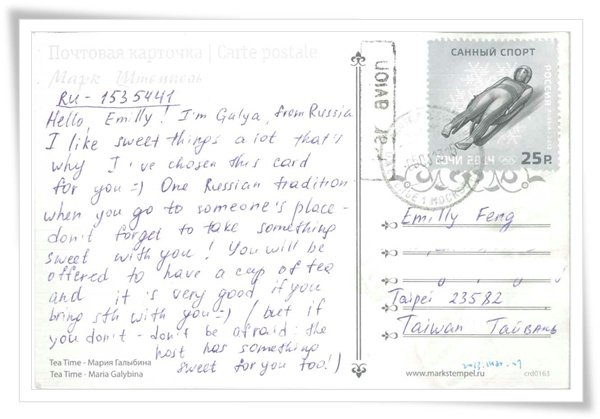 Почтовая карточка | Carte postale
Марк Штемпель
RU - 1535441
Hello, Emilly! I'm Galya, from Russia
I like sweet things a lot that's
why I've chosen this card
for you =) One Russian tradition
when you go to someone's place -
don't forget to take something
sweet with you! You will be
offered to have a cup of tea
and it is very good if you
bring sth with you =) (but if
you don't - don't be afraid: the
host has something
sweet for you too!)
Tea Time - Мария Галыбина
Tea Time - Maria Galybina
PAR AVION
САННЫЙ СПОРТ
РОССИЯ
СОЧИ 2014
25 Р.
Emilly Feng
Taipei 23582
Taiwan Тайвань
www.markstempel.ru
crd0163